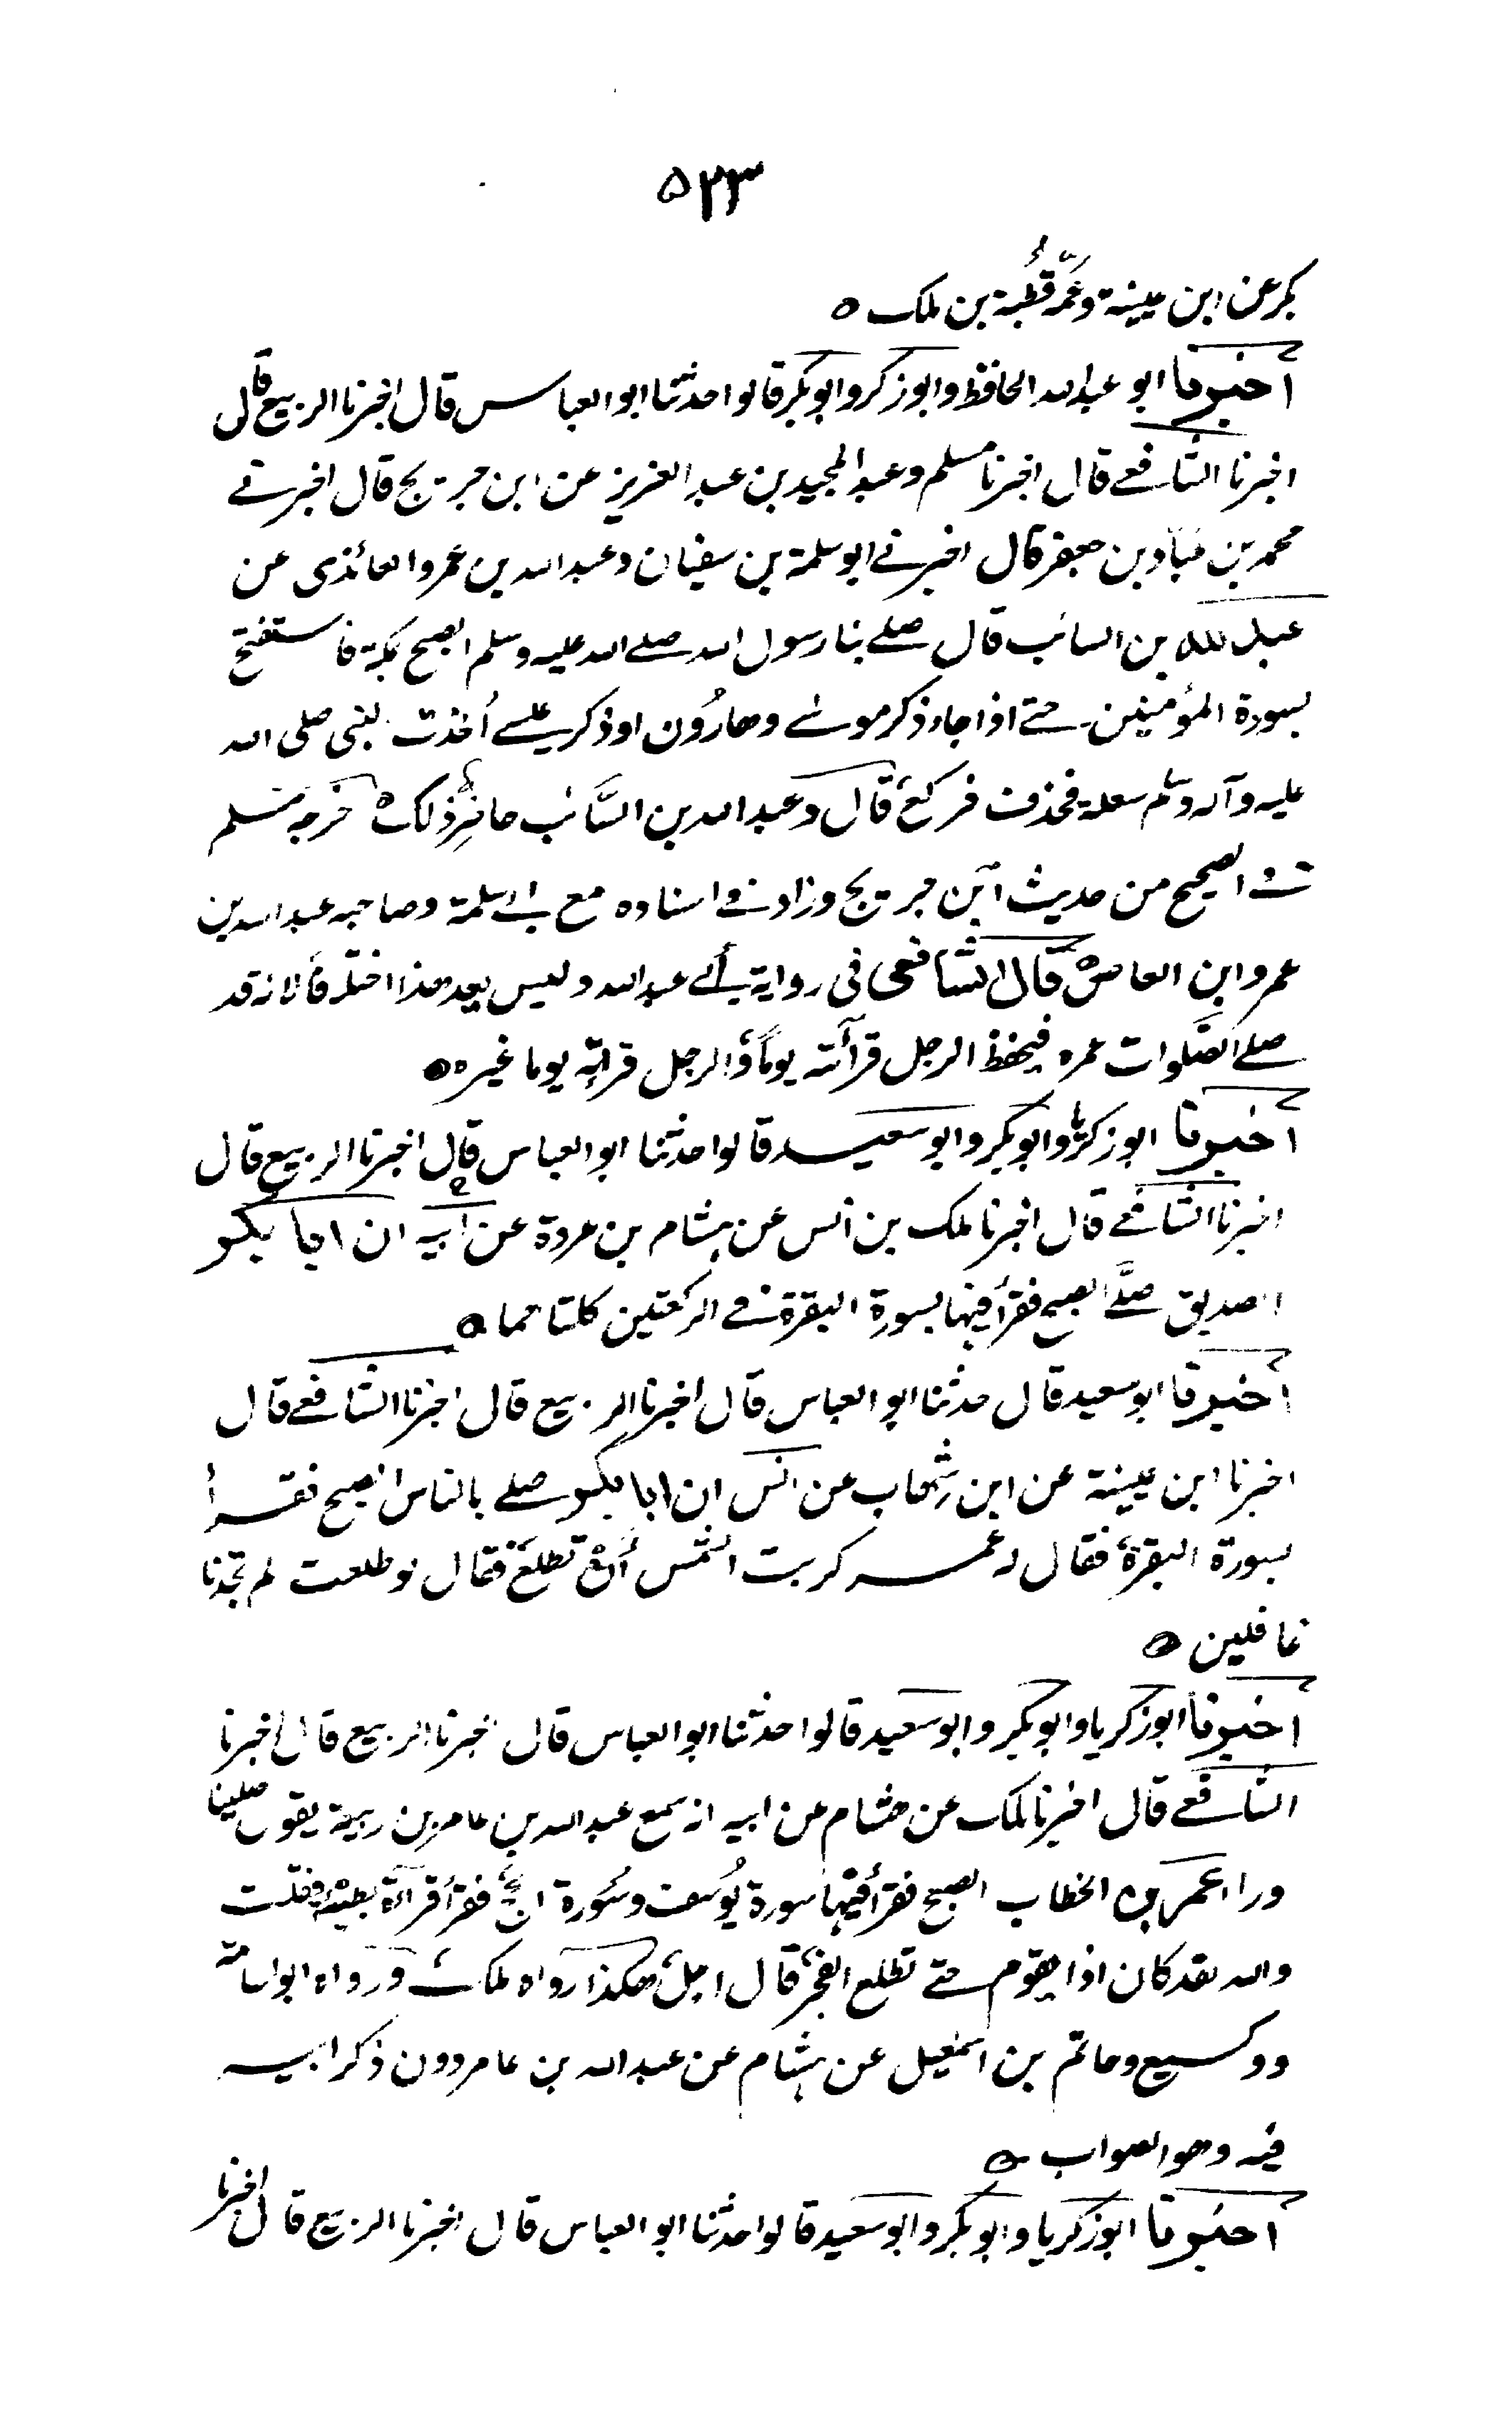 ٥٣٣
بكر عن ابن عيينة وعمّه قُطبة بن ملك ٥
أخبرنا ابو عبدالله الحافظ وابوزكر وابوبكر قالوا حدثنا ابوالعباس قال اخبرنا الربيع قال
اخبرنا الشافعے قال اخبرنا مسلم وعبدالمجيد بن عبدالعزيز عن ابن جريج قال اخبرنے
محمد بن عبّاد بن جعفر قال اخبرنے ابو سلمة بن سفيان وعبدالله بن عمرو العائذى عن
عبدالله بن السائب قال صلے بنا رسول الله صلے الله عليه وسلم الصبح بمكة فاستفتح
بسورة المؤمنين حتے اذا جاء ذكر موسے وهارُون او ذكر عيسے أخذت النبى صلى الله
عليه وآله وسلم سعلة فحذف فركع قال وعبدالله بن السَّائب حاضِر ذلك ٥ خرجه مسلم
فے الصحيح من حديث ابن جريج وزاد فے اسناده مع ابے سلمة وصاحبه عبدالله بن
عمرو ابن العاص ٥ قال الشافعى فى رواية أبے عبدالله وليس يعد هذا اختلافاً لانه قد
صلے الصَّلوات عمره فيحفظ الرجل قرأته يوماً والرجل قرأته يوما غيره ٥
أخبرنا ابوزكريا وابوبكر وابوسعيد قالوا حدثنا ابوالعباس قال اخبرنا الربيع قال
اخبرنا الشافعے قال اخبرنا ملك بن انس عن هشام بن عروة عن أبيه ان ابا بكر
الصديق صلَّے الصبح فقرأ فيها بسورة البقرة فے الركعتين كلتاهما ٥
أخبرنا ابوسعيد قال حدثنا ابوالعباس قال اخبرنا الربيع قال اخبرنا الشافعے قال
اخبرنا ابن عيينة عن ابن شهاب عن انس ان ابا بكر صلے بالناس الصبح فقرأ
بسورة البقرة فقال له عمر كربت الشمس أن تطلع فقال لو طلعت لم تجدنا
غافلين ٥
أخبرنا ابوزكريا وابوبكر وابوسعيد قالوا حدثنا ابوالعباس قال اخبرنا الربيع قال اخبرنا
الشافعے قال اخبرنا ملك عن هشام عن ابيه انه سمع عبدالله بن عامر بن ربيعة يقول صلينا
وراء عمر بن الخطاب الصبح فقرأ فيها سورة يُوسف وسُورة الحج فقرأ قرآءة بطيئة فقلت
والله لقد كان اذا يقوم حتے تطلع الفجر قال اجل هكذا رواه ملك ورواه ابواسامة
ووكسيع وحاتم بن اسمعيل عن هشام عن عبدالله بن عامر دون ذكر ابيه
فيه وهو الصواب ٥
أخبرنا ابوزكريا وابوبكر وابوسعيد قالوا حدثنا ابوالعباس قال اخبرنا الربيع قال اخبرنا